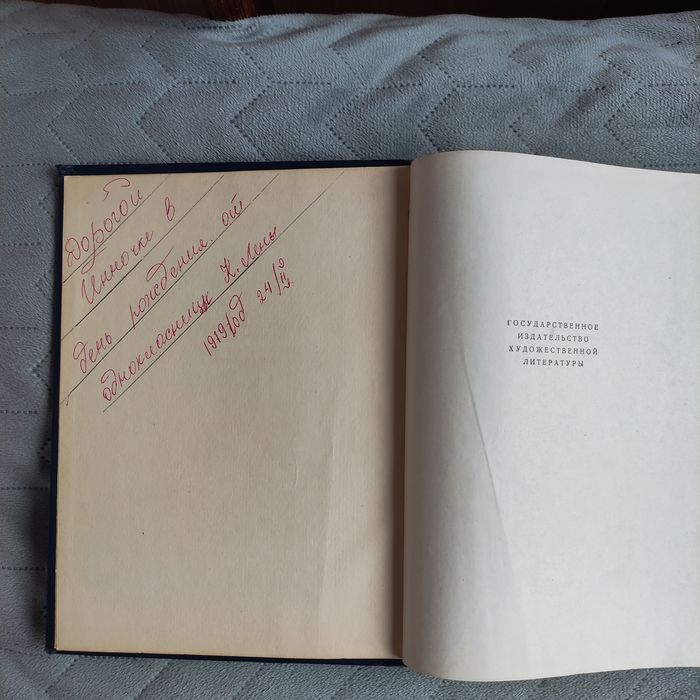 Дорогой
Инночке в
день рождения от
однокласницы К. Лены
1979 год 24/II
ГОСУДАРСТВЕННОЕ
ИЗДАТЕЛЬСТВО
ХУДОЖЕСТВЕННОЙ
ЛИТЕРАТУРЫ